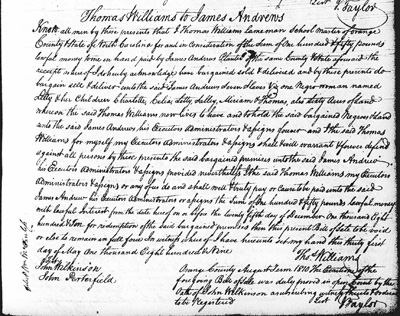 Test J Taylor
Thomas Williams to James Andrews
Know all men by these presents that I Thomas Williams School Master of orange
County State of North Carolina for and in Consideration of the Sum of One hundred & fifty pounds
lawful money to me in hand paid by James Andrews Planter of the same County & State aforesaid the
receipt whereof I do hereby acknowledge have bargained sold & delivered and by these presents do
bargain sell & deliver unto the said James Andrews Seven Slaves Viz one Negro woman named
Letty & her Children Charlotte, Celia, Letty, Selley, Miriam & Thomas, also Sixty Acres of land
whereon the said Thomas Williams now lives to have and to hold the said bargained Negroes & land
unto the said James Andrews, his Executors Administrators & assigns forever and I the said Thomas
Williams for myself my Executors Administrators & assigns shall & will warrant & forever defend
against all persons by these presents the said bargained premises unto the said James Andrews
his Executors Administrators & assigns provided nevertheless if I the said Thomas Williams my Executors
Administrators & assigns or any of us do and shall well & truly pay or cause to be paid unto the said
James Andrews his Executors Administrators or assigns the Sum of One hundred & fifty pounds lawful money
with lawful Interest from the date hereof on or before the twenty fifth day of December One thousand Eight
hundred & ten for redemption of the said bargained premises then this present Bill of Sale to be void
or else to remain in full force In witness whereof I have hereunto set my hand this thirty first
day of May One thousand Eight hundred & Nine
Thos Williams
Test
John Wilkinson
John Porterfield
Orange County August Term 1810 The Execution of the
foregoing Bill of Sale was duly proved in open Court by the
Oath of John Wilkinson a subscribing witness thereto & ordered
to be Registered
Test J Taylor